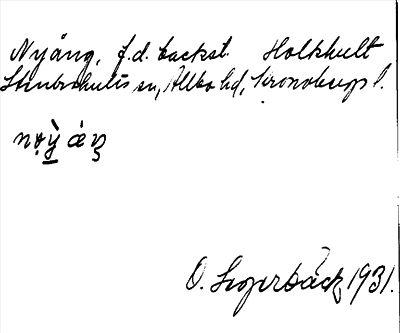 Nyång, f.d. backst. Holkhult
Stenbrohults sn, Allbo hd, Kronobergs l.
O. Segerbäck, 1931.